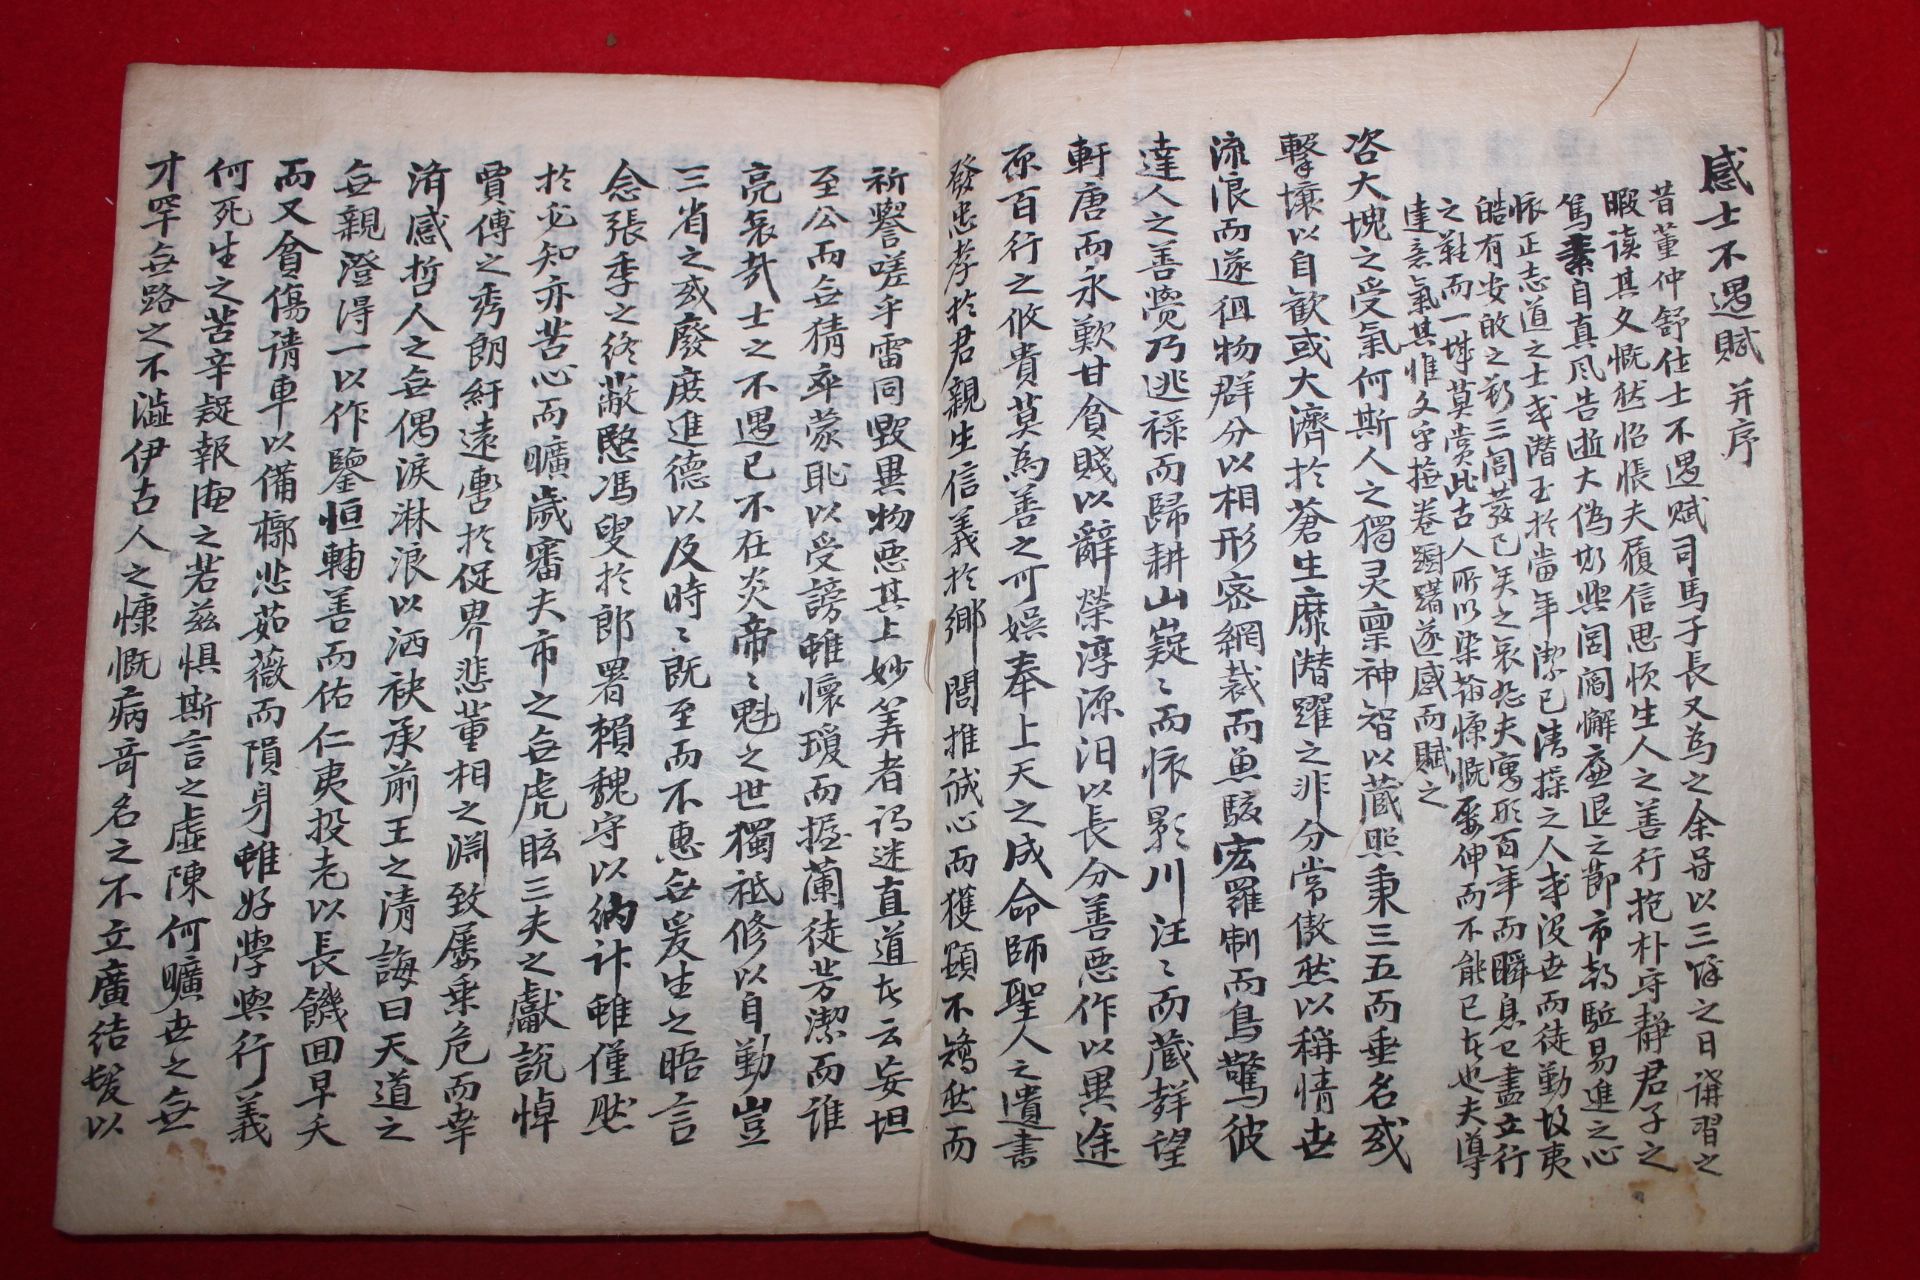 感士不遇賦 并序
昔董仲舒仕士不遇賦司馬子長又為之余甞以三餘之日講習之
暇读其文慨然惆悵夫履信思順生人之善行抱朴守静君子之
篤素自真风告逝大偽斯興閭閻懈廉退之節市朝駈易進之心
懷正志道之士或潜玉於當年潔己清操之人或没世而徒勤故夷
皓有安故之歎三閭發已矣之哀悲夫寓形百年而瞬息已盡立行
之難而一城莫赏此古人所以染翰慷慨屡伸而不能已者也夫導
達意氣其惟文乎撫卷躊躇遂感而賦之
咨大塊之受氣何斯人之獨灵禀神智以藏照秉三五而垂名或
擊壤以自歡或大濟於蒼生靡潜躍之非分常傲然以稱情世
流浪而遂徂物群分以相形密網裁而魚駭宏羅制而鳥驚彼
達人之善覺乃逃禄而歸耕山嶷〻而懐影川汪〻而藏聲望
軒唐而永歎甘貧賤以辭榮淳源汩以長分善惡作以異途
原百行之攸貴莫為善之可娯奉上天之成命師聖人之遺書
發忠孝於君親生信義於郷閭推誠心而獲顕不矯然而
祈譽嗟乎雷同毁異物惡其上妙筭者谓迷直道者云妄坦
至公而無猜卒蒙恥以受謗雖懷瓊而握蘭徒芳潔而誰
亮哀哉士之不遇已不在炎帝〻魁之世獨祗修以自勤豈
三省之或廢庶進德以及時〻既至而不惠無爰生之晤言
念張季之終蔽愍馮叟於郎署賴魏守以納計雖僅然
於必知亦苦心而曠歲審夫市之無虎眩三夫之獻說悼
賈傅之秀朗紆遠轡於促界悲董相之淵致屡乗危而幸
濟感哲人之無偶淚淋浪以洒袂承前王之清誨曰天道之
無親澄得一以作鑒恒輔善而佑仁夷投老以長饑囬早夭
而又貧傷请車以備槨悲茹薇而隕身雖好學與行義
何死生之苦辛疑報徳之若兹惧斯言之虚陳何曠世之無
才罕無路之不澁伊古人之慷慨病竒名之不立廣结髮以